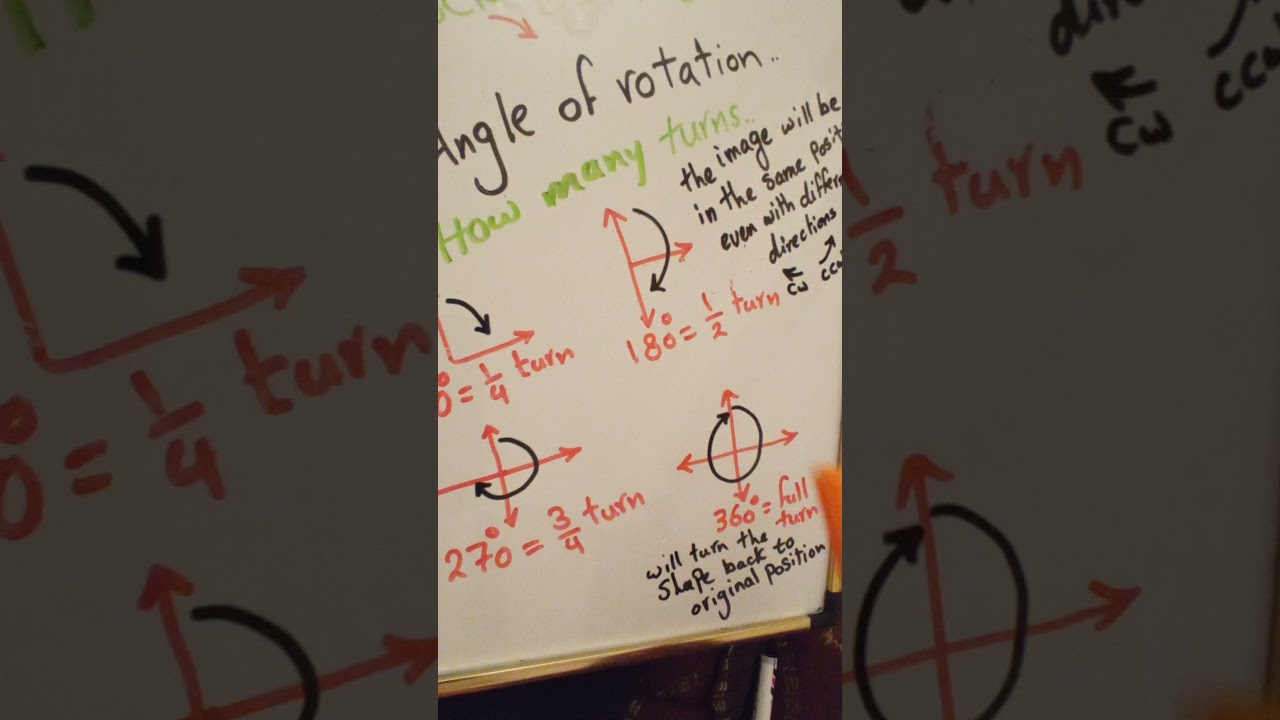 Angle of rotation..
How many turns..
the image will be
in the same posit
even with differe
directions
cw ccw
0° = 1/4 turn
180° = 1/2 turn
270° = 3/4 turn
360° = full
turn
will turn the
shape back to
original position